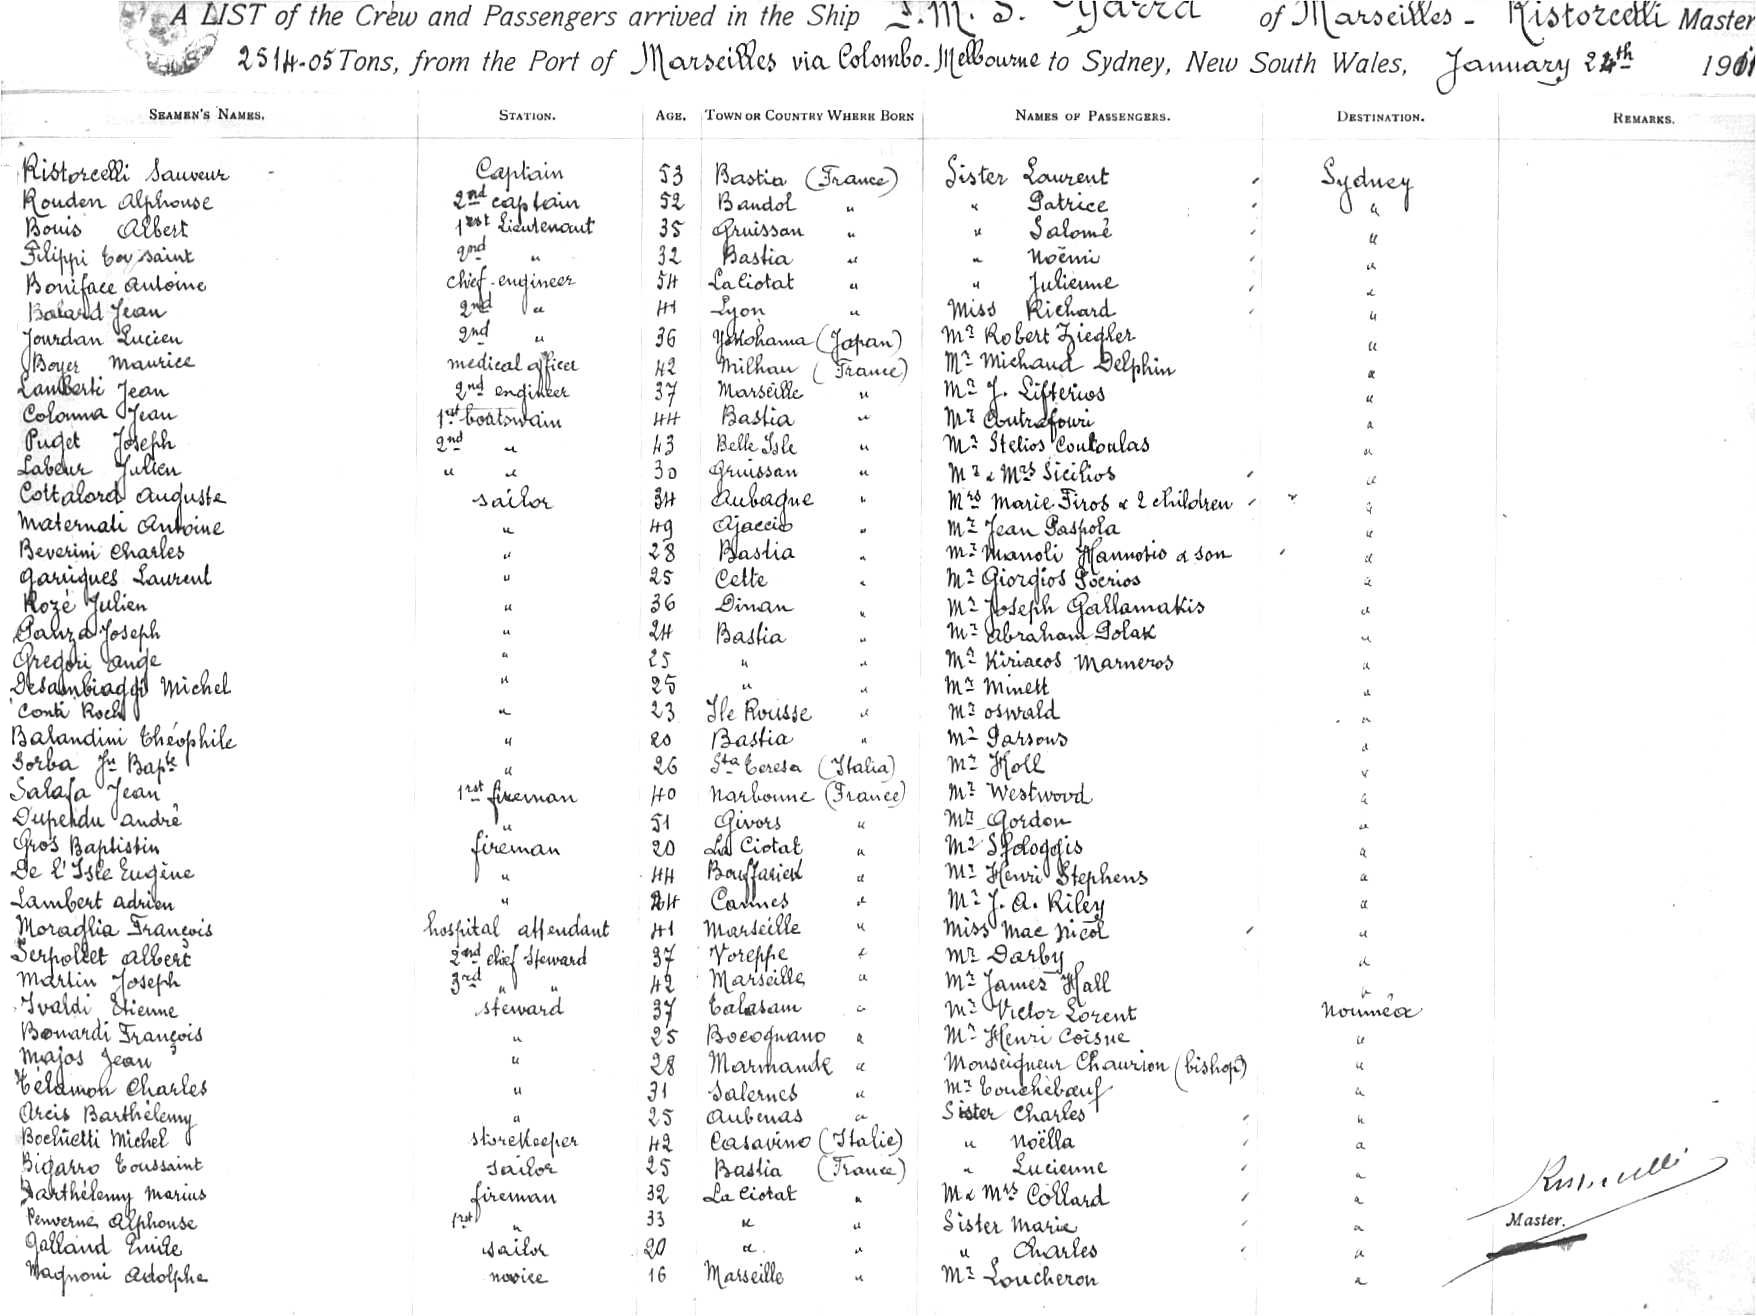 A LIST of the Crew and Passengers arrived in the Ship F.M.S. Yarra of Marseilles - Ristorcelli Master
2514.05 Tons, from the Port of Marseilles via Colombo. Melbourne to Sydney, New South Wales, January 24th 1901
SEAMEN'S NAMES. STATION. AGE. TOWN OR COUNTRY WHERE BORN NAMES OF PASSENGERS. DESTINATION. REMARKS.
Ristorcelli Sauveur - Captain 53 Bastia (France) Sister Laurent Sydney
Rouden Alphonse 2nd captain 52 Bandol " " Patrice "
Bouis Albert 1rst Lieutenant 35 Gruissan " " Salomé "
Filippi Toussaint 2nd " 32 Bastia " " Noëmi "
Boniface Antoine chief-engineer 54 La Ciotat " " Julienne "
Balard Jean 2nd " 41 Lyon " Miss Richard "
Jourdan Lucien 2nd " 36 Yokohama (Japan) Mr Robert Ziegler "
Boyer Maurice medical officer 42 Milhau (France) Mr Michaud Delphin "
Lamberti Jean 2nd engineer 37 Marseille " Mr J. Lifterios "
Colonna Jean 1rst boatswain 44 Bastia " Mr Coutrafouri "
Puget Joseph 2nd " 43 Belle Isle " Mr Stelios Coutoulas "
Labeur Julien " " 30 Gruissan " Mr & Mrs Sicilios "
Cottalord Auguste sailor 34 Aubagne " Mrs Marie Firos & 2 children "
Maternati Antoine " 49 Ajaccio " Mr Jean Paspola "
Beverini Charles " 28 Bastia " Mr Manoli Hannotio & son "
Garrigues Laurent " 25 Cette " Mr Giorgios Poerios "
Rozé Julien " 36 Dinan " Mr Joseph Gallamakis "
Panza Joseph " 24 Bastia " Mr Abraham Polak "
Gregori Ange " 25 " " Mr Kiriacos Marneros "
Desambiaggi Michel " 25 " " Mr Minett "
Conti Roch " 23 Ile Rousse " Mr Oswald "
Balandini Théophile " 20 Bastia " Mr Parsons "
Sorba Jn Bapte " 26 Sta Teresa (Italia) Mr Holl "
Salasa Jean 1rst fireman 40 Narbonne (France) Mr Westwood "
Dupendu André " 51 Givors " Mr Gordon "
Gros Baptistin fireman 20 La Ciotat " Mr Sfologgis "
De l'Isle Eugène " 44 Bouffarick " Mr Henri Stephens "
Lambert Adrien " 24 Cannes " Mr J. A. Riley "
Moraglia François hospital attendant 41 Marseille " Miss Mac Nicol "
Serpollet Albert 2nd chief steward 37 Voreppe " Mr Darby "
Martin Joseph 3rd " " 42 Marseille " Mr James Hall "
Ivaldi Etienne steward 37 Calasam " Mr Victor Lorent Nouméa
Bonardi François " 25 Bocognano " Mr Henri Coisne "
Majos Jean " 28 Marmande " Monseigneur Chaurion (bishop) "
Télamon Charles " 31 Salernes " Mr Touchebœuf "
Arcis Barthélemy " 25 Aubenas " Sister Charles "
Bochietti Michel storekeeper 42 Casavino (Italie) " Noëlla "
Bigarro Toussaint sailor 25 Bastia (France) " Lucienne "
Barthélemy Marius fireman 32 La Ciotat " M & Mrs Collard "
Penverne Alphonse 1rst " 33 " " Sister Marie "
Galland Emile sailor 20 " " " Charles "
Magnoni Adolphe novice 16 Marseille " Mr Loucheron "
Ristorcelli
Master.